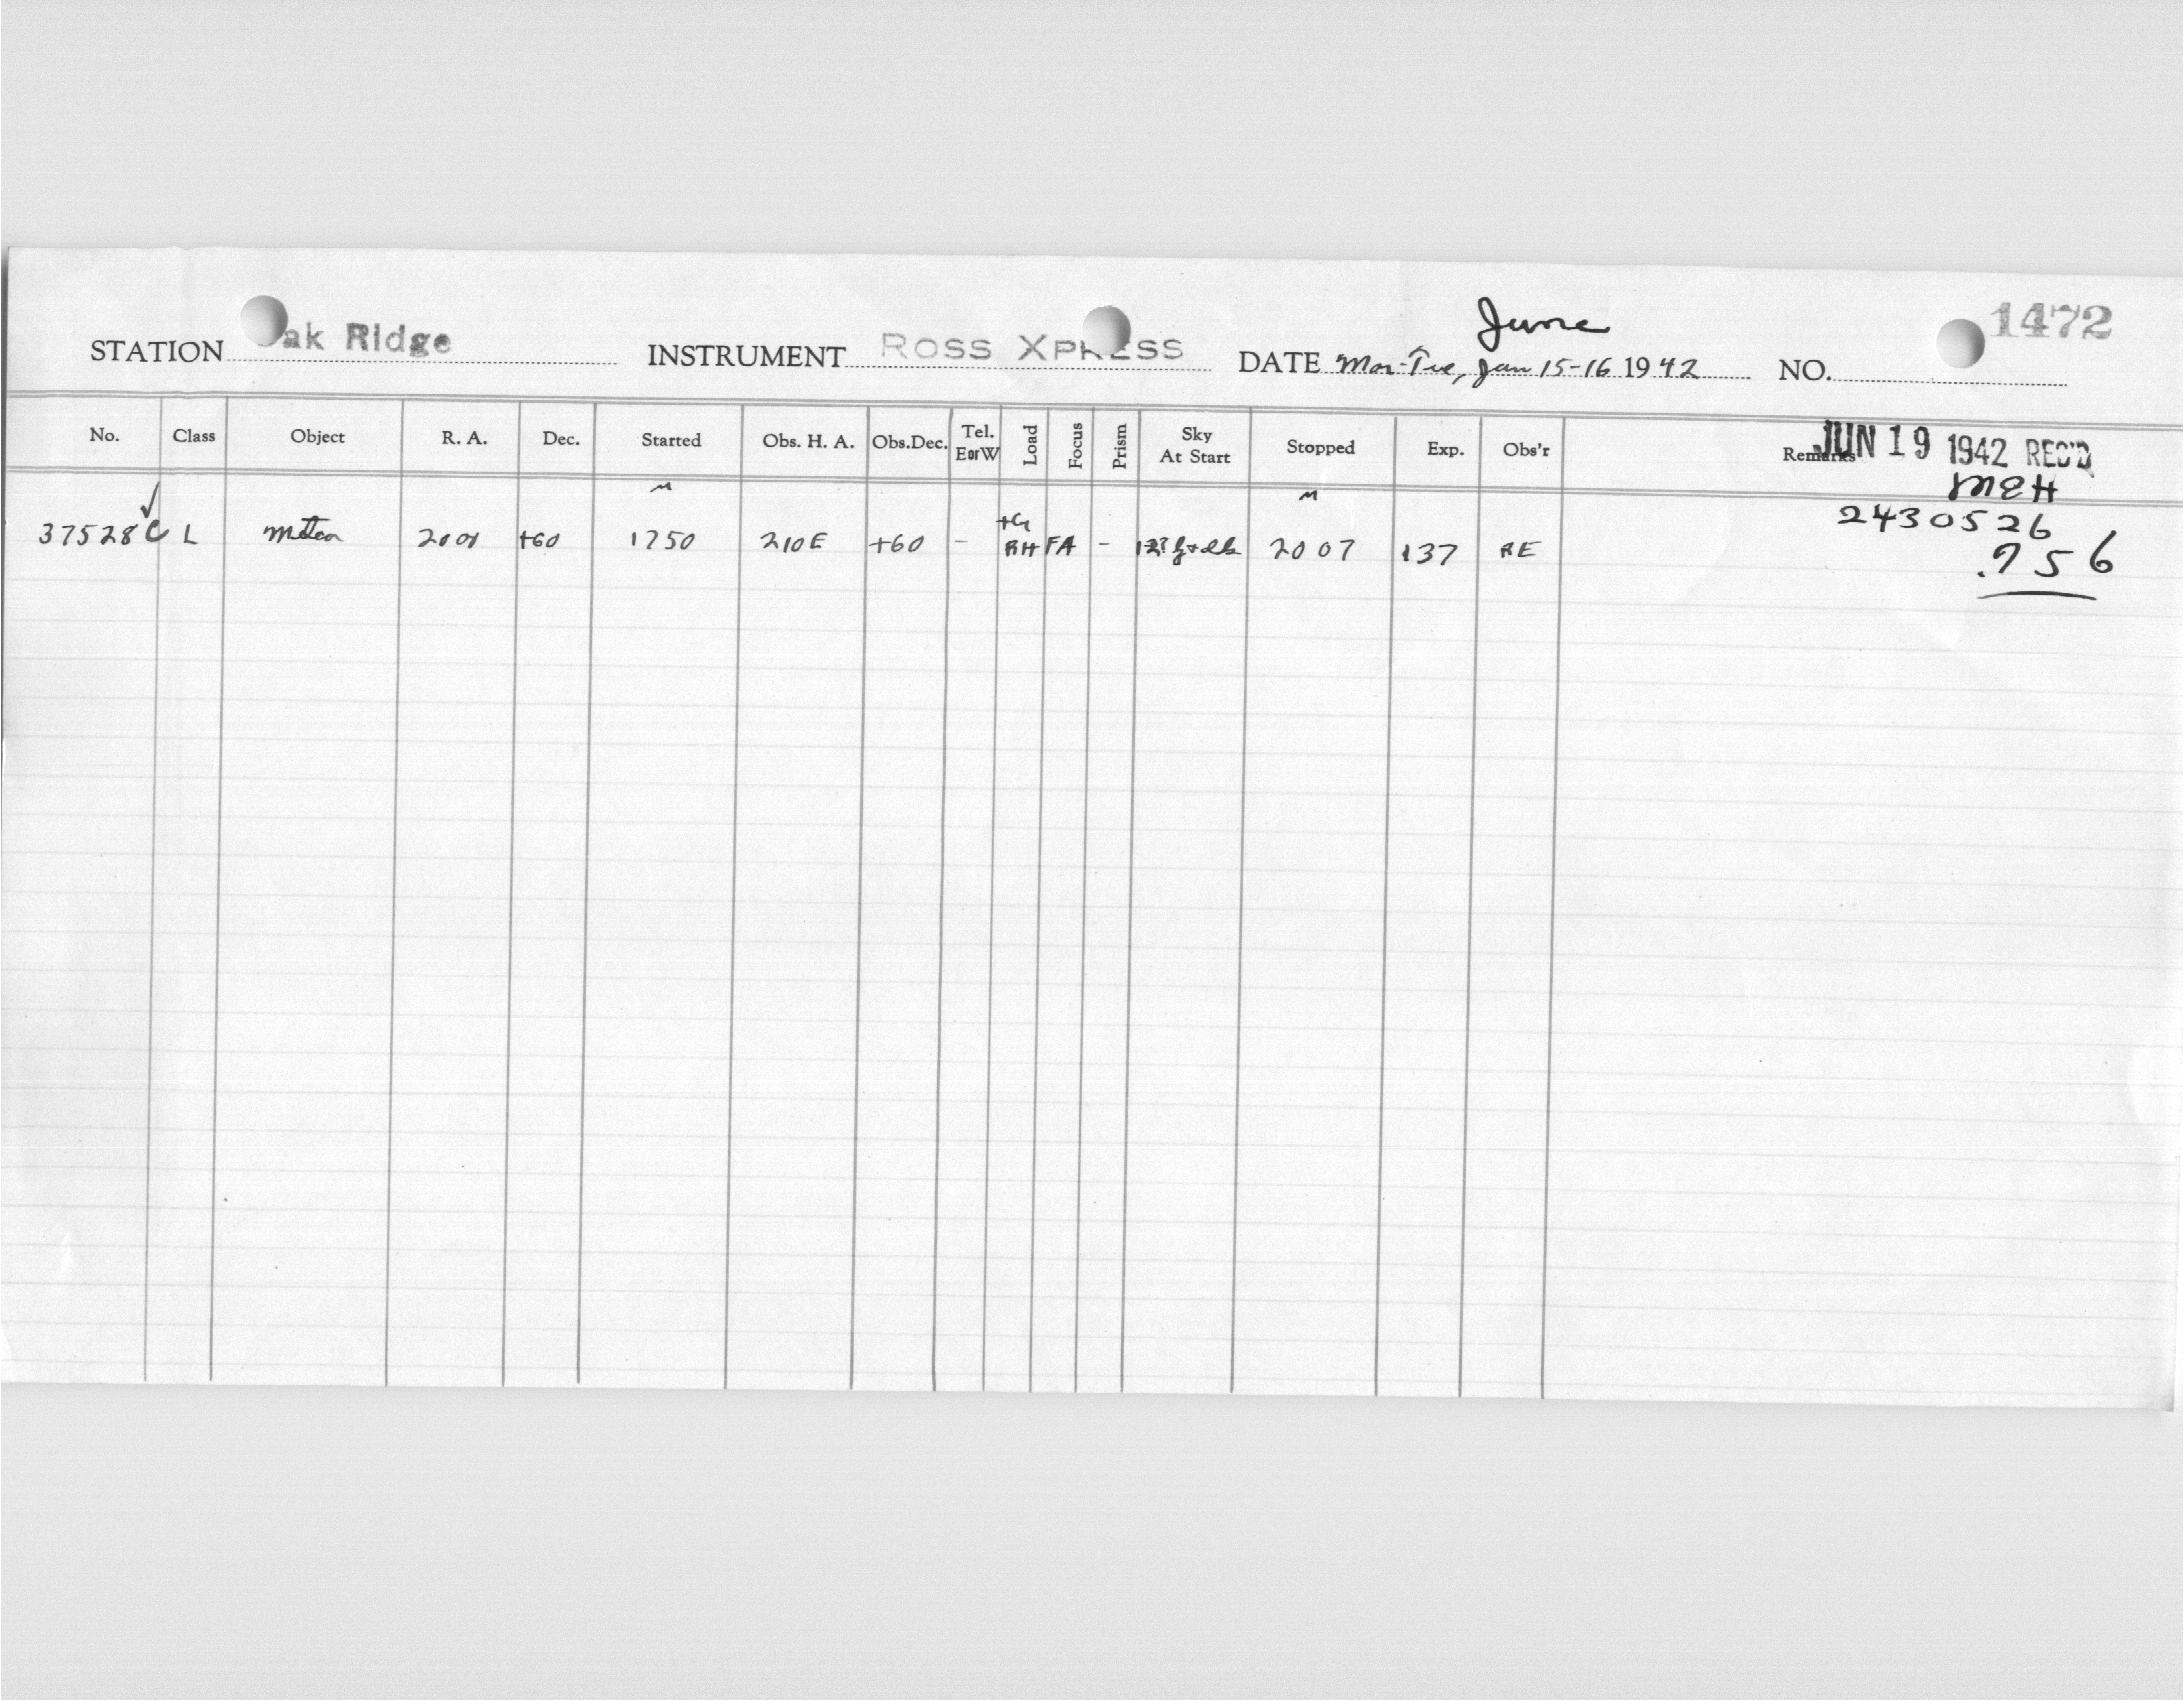 June
STATION ak Ridge INSTRUMENT ROSS XPRESS DATE Mon-Tue, Jun 15-16 1942 NO. 1472
No. Class Object R. A. Dec. Started Obs. H. A. Obs.Dec. Tel. EorW Load Focus Prism Sky At Start Stopped Exp. Obs'r Remarks
JUN 19 1942 REC'D
MEH
2430526
.756
37528 C L Meteor 2001 +60 1750 210E +60 - +G RH FA - 2007 137 RE